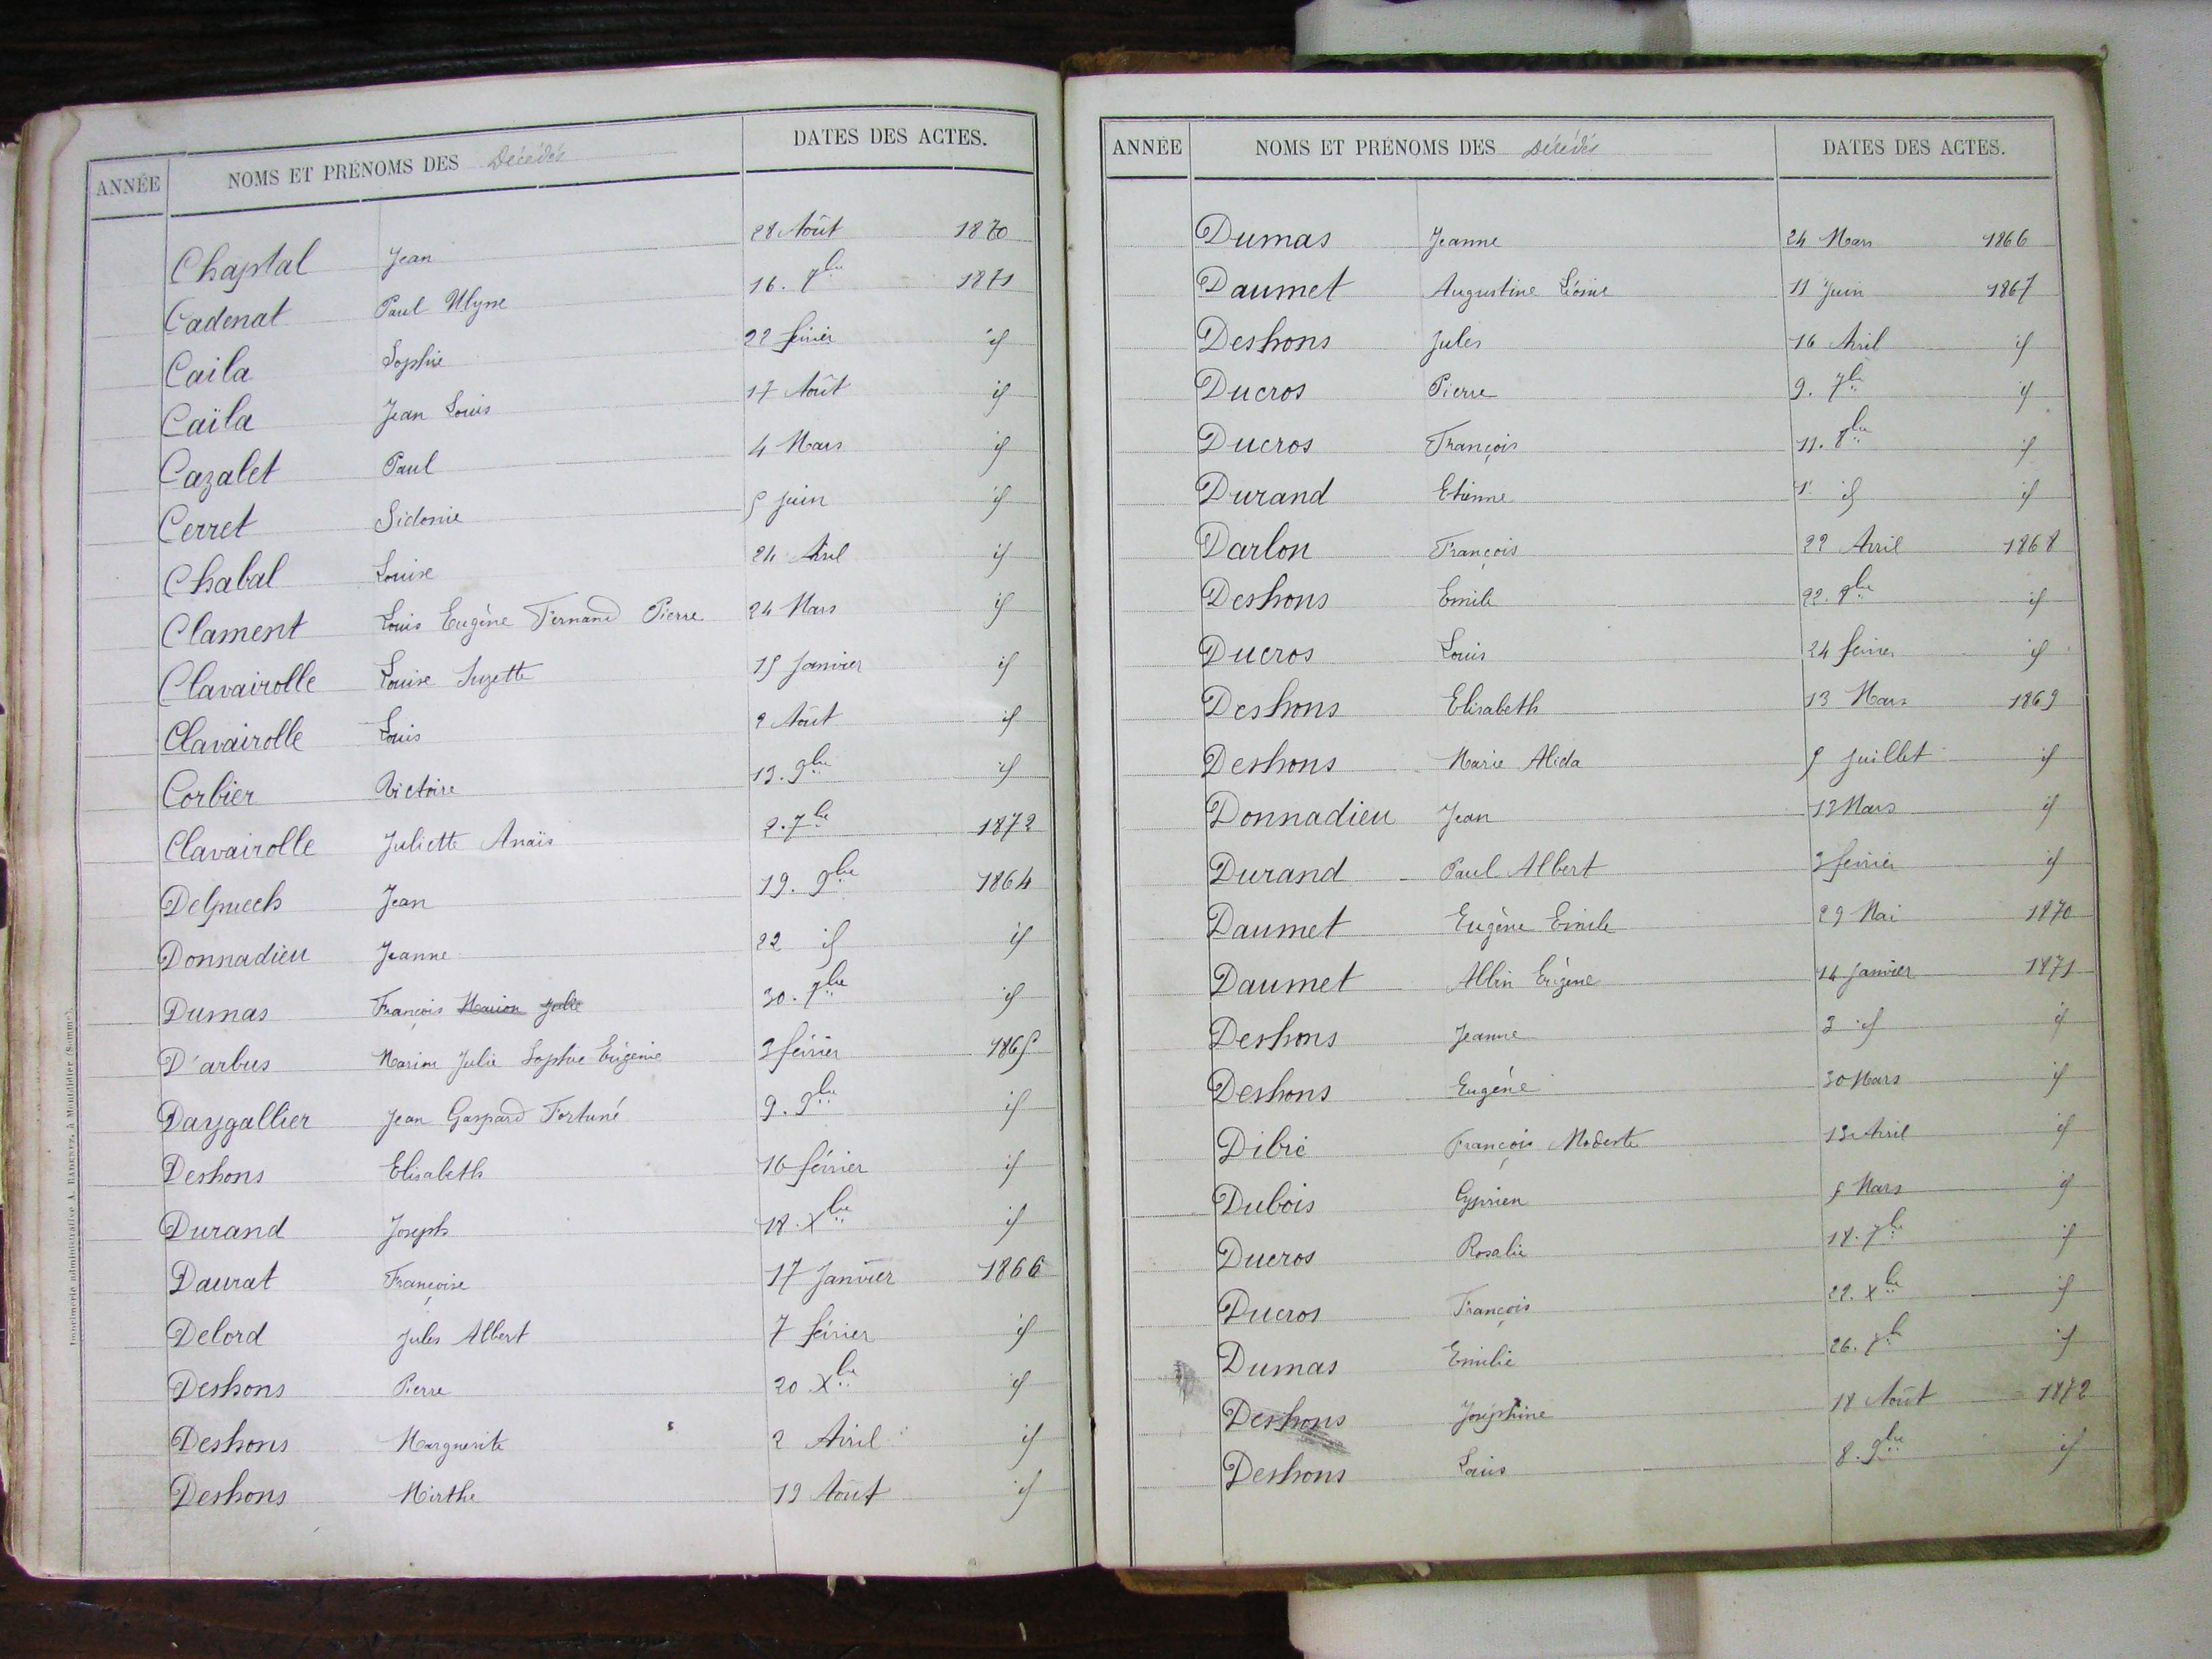 ANNÉE NOMS ET PRÉNOMS DES Décédés DATES DES ACTES.
Chaptal Jean 28 Août 1870
Cadenat Paul Ulysse 16. 7bre 1871
Caila Sophie 22 février id
Caïla Jean Louis 17 Août id
Cazalet Paul 4 Mars id
Cerret Sidonie 5 juin id
Chabal Louise 24 Avril id
Clament Louis Eugène Fernand Pierre 24 Mars id
Clavairolle Louise Suzette 15 Janvier id
Clavairolle Louis 2 Août id
Corbier Victoire 13. 9bre id
Clavairolle Juliette Anaïs 2. 7bre 1872
Delpuech Jean 19. 9bre 1864
Donnadieu Jeanne 22 id id
Dumas François Marion Julie 30. 7bre id
D'arbus Marion Julie Sophie Eugénie 3 février 1865
Daygallier Jean Gaspard Fortuné 9. 9bre id
Deshons Elisabeth 16 février id
Durand Joseph 18. Xbre id
Daurat Françoise 17 Janvier 1866
Delord Jules Albert 7 février id
Deshons Pierre 20 Xbre id
Deshons Marguerite 2 Avril id
Deshons Mirthe 19 Août id
Imprimerie administrative A. à Montdidier (Somme).
ANNÉE NOMS ET PRÉNOMS DES Décédés DATES DES ACTES.
Dumas Jeanne 24 Mars 1866
Daumet Augustine Léonie 11 Juin 1867
Deshons Jules 16 Avril id
Ducros Pierre 9. 7bre id
Ducros François 11. 8bre id
Durand Etienne 1r id id
Darlon François 22 Avril 1868
Deshons Emile 22. id
Ducros Louis 24 février id
Deshons Elisabeth 13 Mars 1869
Deshons Marie Alida 5 Juillet id
Donnadieu Jean 12 Mars id
Durand Paul Albert 3 février id
Daumet Eugène Emile 29 Mai 1870
Daumet Albin Eugène 14 Janvier 1871
Deshons Jeanne 3 id id
Deshons Eugène 30 Mars id
Dibié François Modeste 13 Avril id
Dubois Cyprien 5 Mars id
Ducros Rosalie 18. 7bre id
Ducros François 22. Xbre id
Dumas Emilie 26. 7bre id
Deshons Joséphine 18 Août 1872
Deshons Louis 8. 9bre id